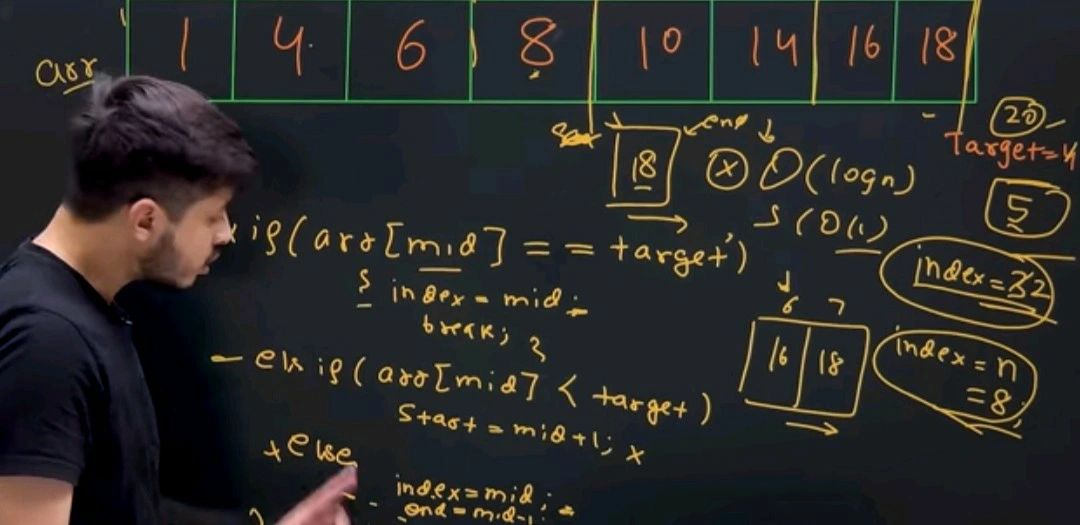 arr 1 4 6 8 10 14 16 18
20
end
18 O(logn)
Target=4
S(O(1)
5
if(arr[mid] == target)
index=32
{ index = mid;
break; }
6 7
16 18
index=n
=8;
else if(arr[mid] < target)
start = mid+1;
else
index=mid;
end=mid-1;